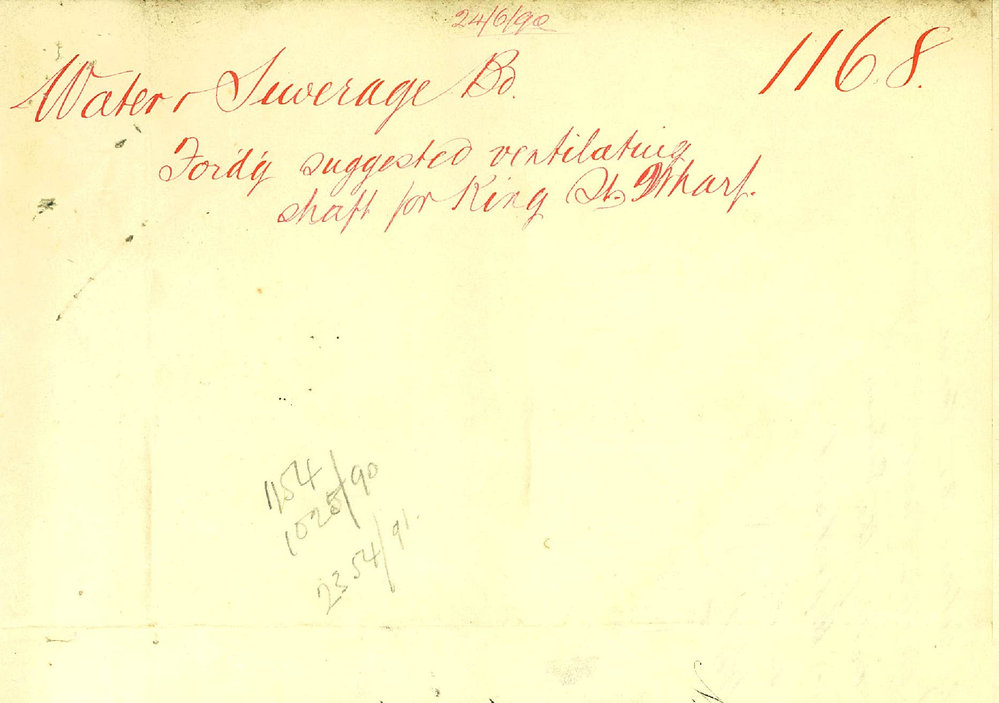 24/6/90
1168.
Water & Sewerage Bd.
Fordg suggested ventilating
shaft for King St. Wharf.
1154
1025/90
2354/91.